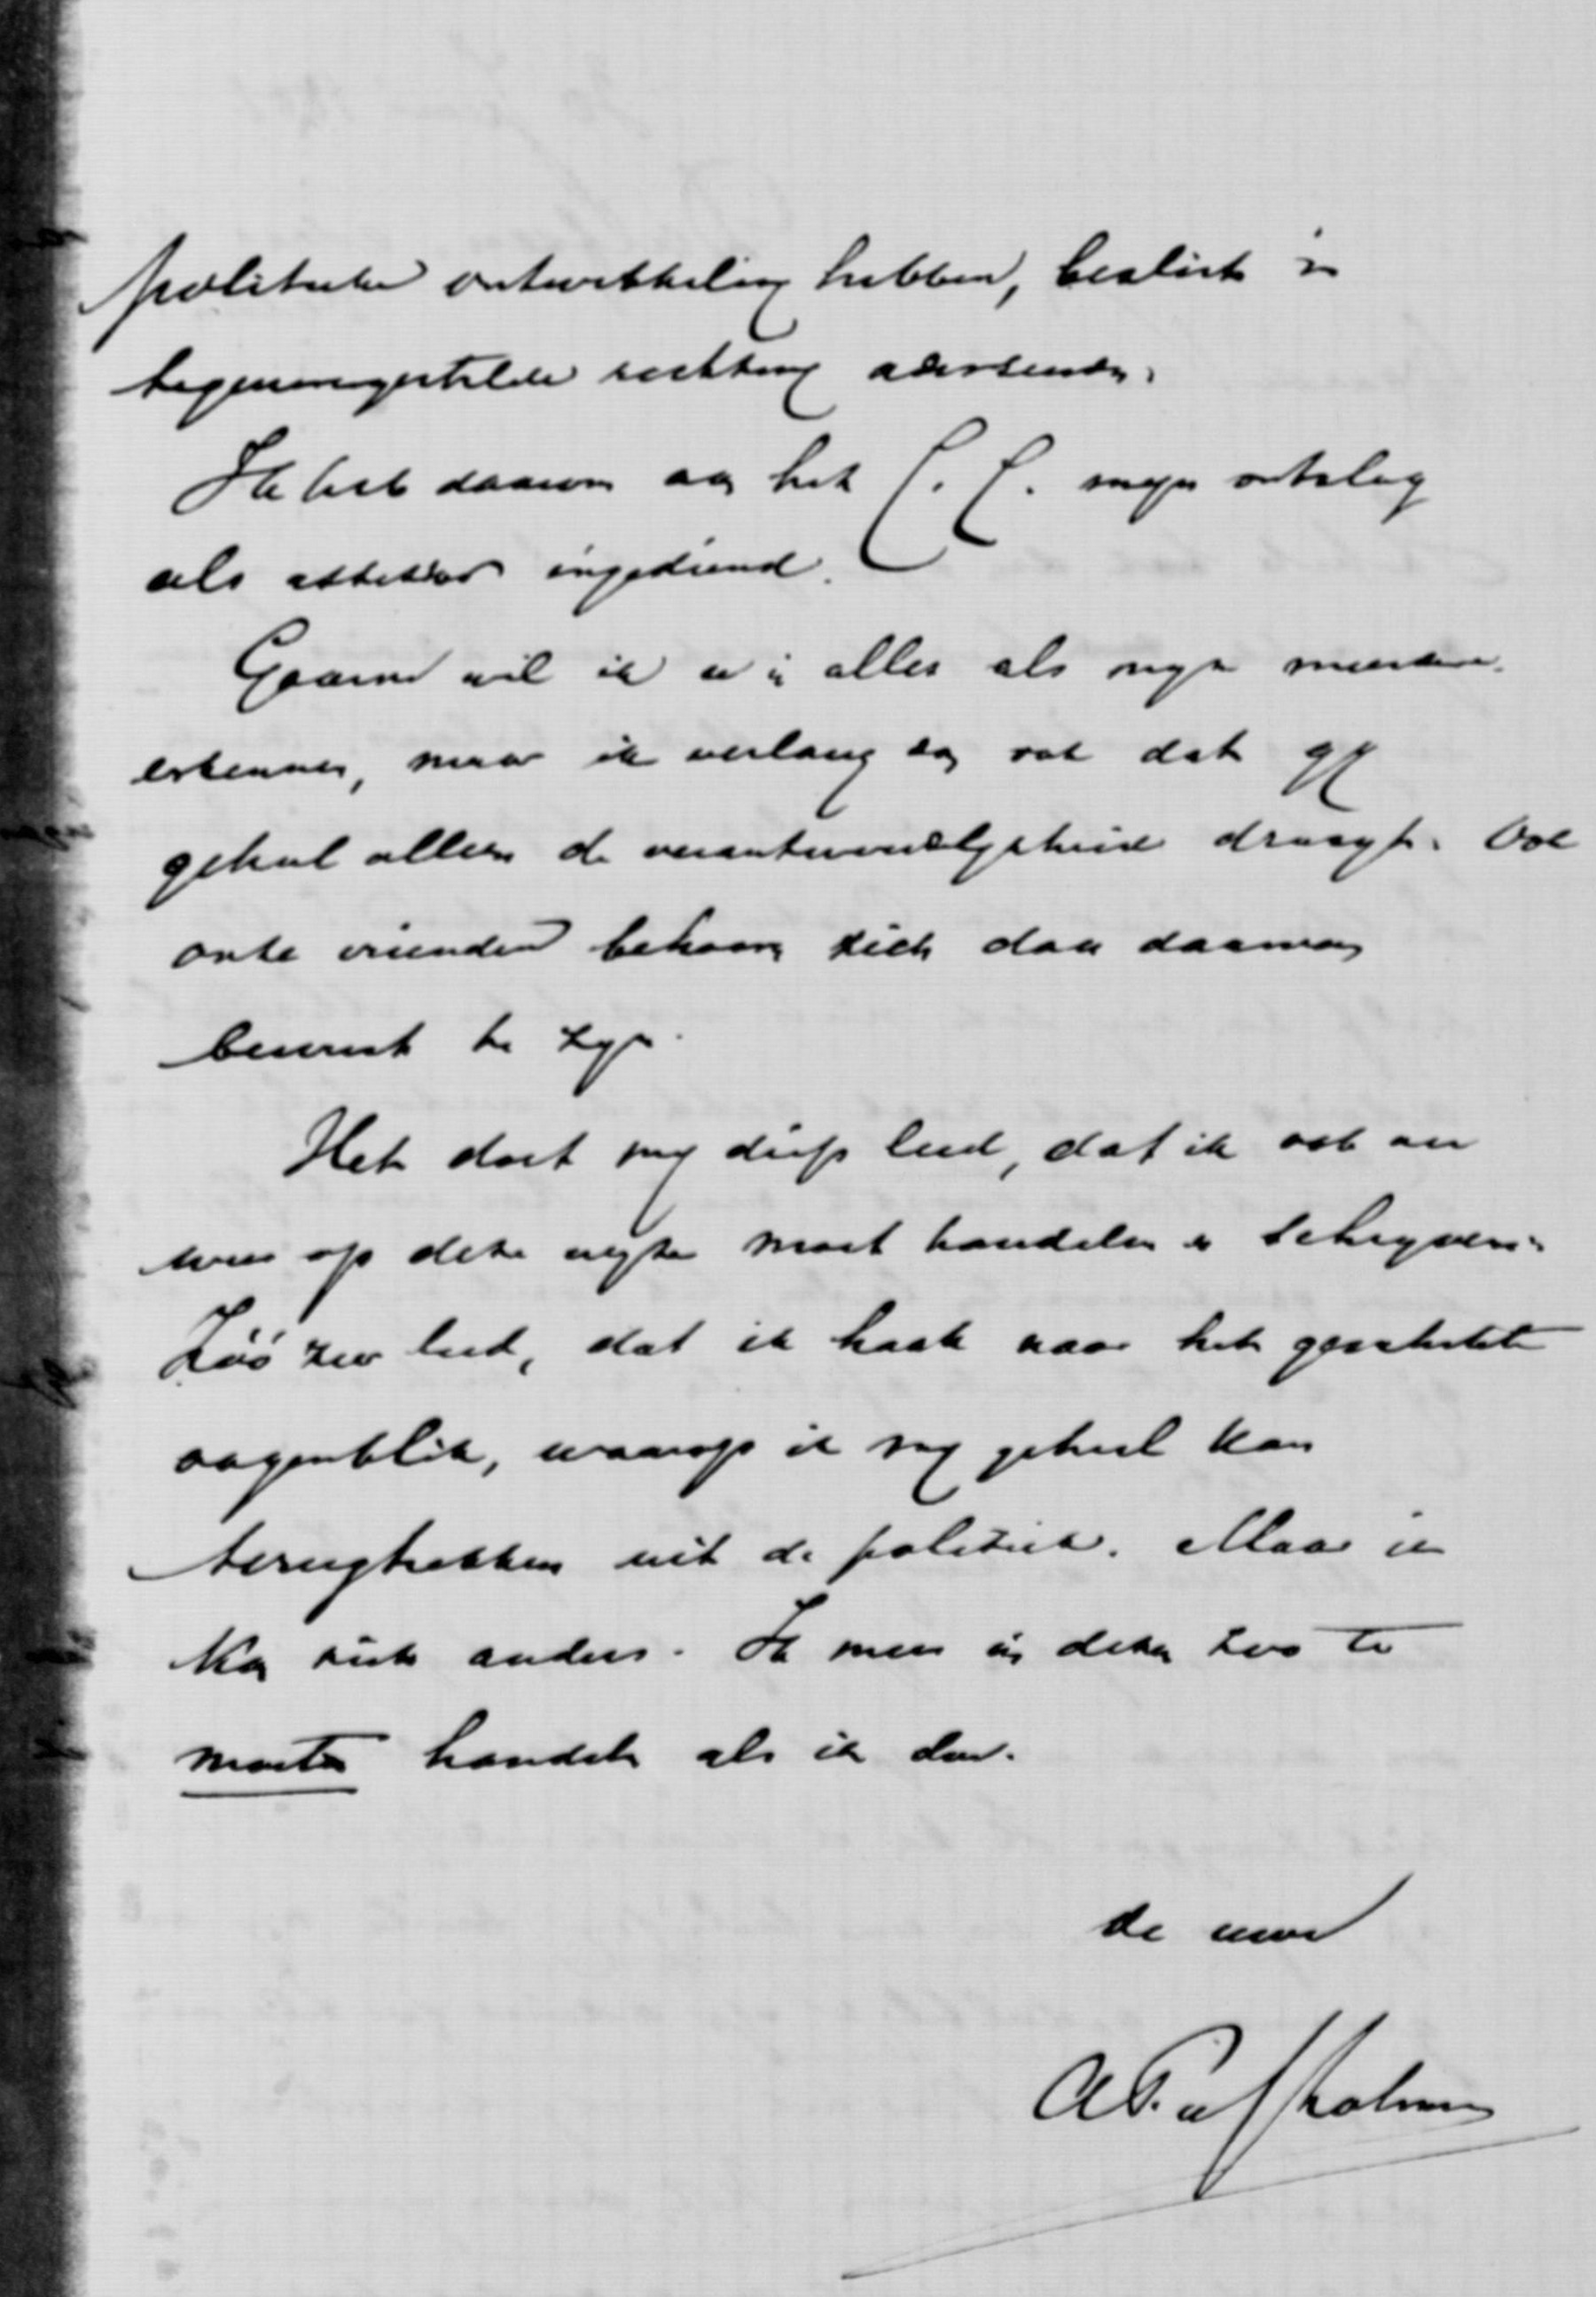 politieke ontwikkeling hebben, beslist in
tegenovergestelde richting adviseerden.
Ik heb daarom aan het C. C. mijn ontslag
als adviseur ingediend.
Gaarne wil ik u in alles als mijn meerdere
erkennen, maar ik verlang dan ook dat gij
geheel alleen de verantwoordelijkheid draagt. Ook
onze vrienden behooren zich dan daarvan
bewust te zijn.
Het doet mij diep leed, dat ik ook nu
weer op deze wijze moet handelen en schrijven.
Zóó zeer leed, dat ik haak naar het geschikte
oogenblik, waarop ik mij geheel kan
terugtrekken uit de politiek. Maar ik
kan niet anders. Ik meen in dezen zoo te
moeten handelen als ik doe.
de uwe